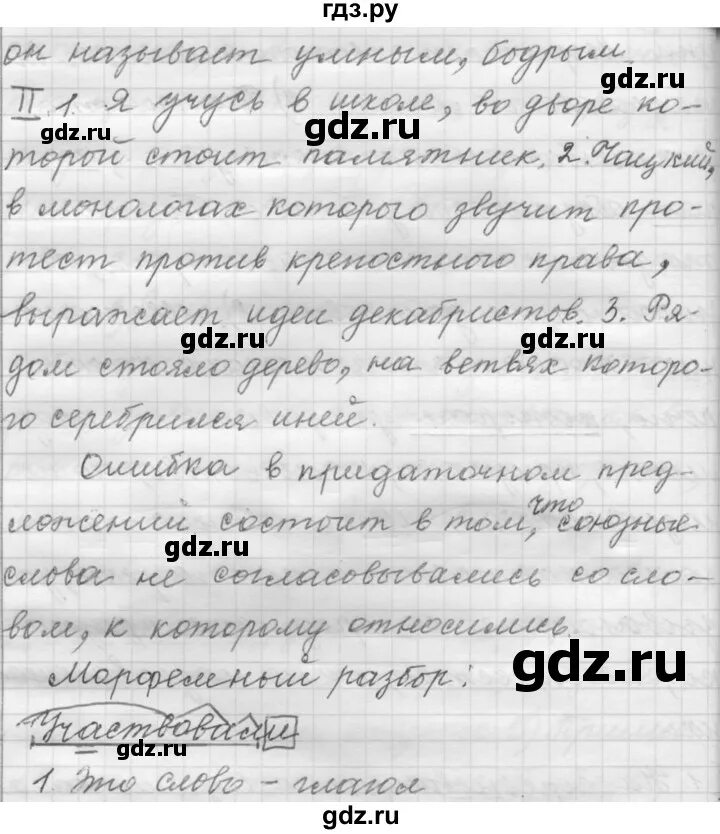 гдз.ру
он называет умным, бодрым.
gdz.ru
II. 1. Я учусь в школе, во дворе ко-
gdz.ru
gdz.ru
торой стоит памятник. 2. Чацкий,
в монологах которого звучит про-
тест против крепостного права,
выражает идеи декабристов. 3. Ря-
gdz.ru
gdz.ru
дом стояло дерево, на ветвях которо-
го серебрился иней.
gdz.ru
Ошибка в придаточном пред-
ложений состоит в том, что союзные
gdz.ru
слова не согласовывались со сло-
вом, к которому относились.
gdz.ru
Морфемный разбор:
Участвовали
gdz.ru
1. Это слово - глагол
gdz.ru
gdz.ru